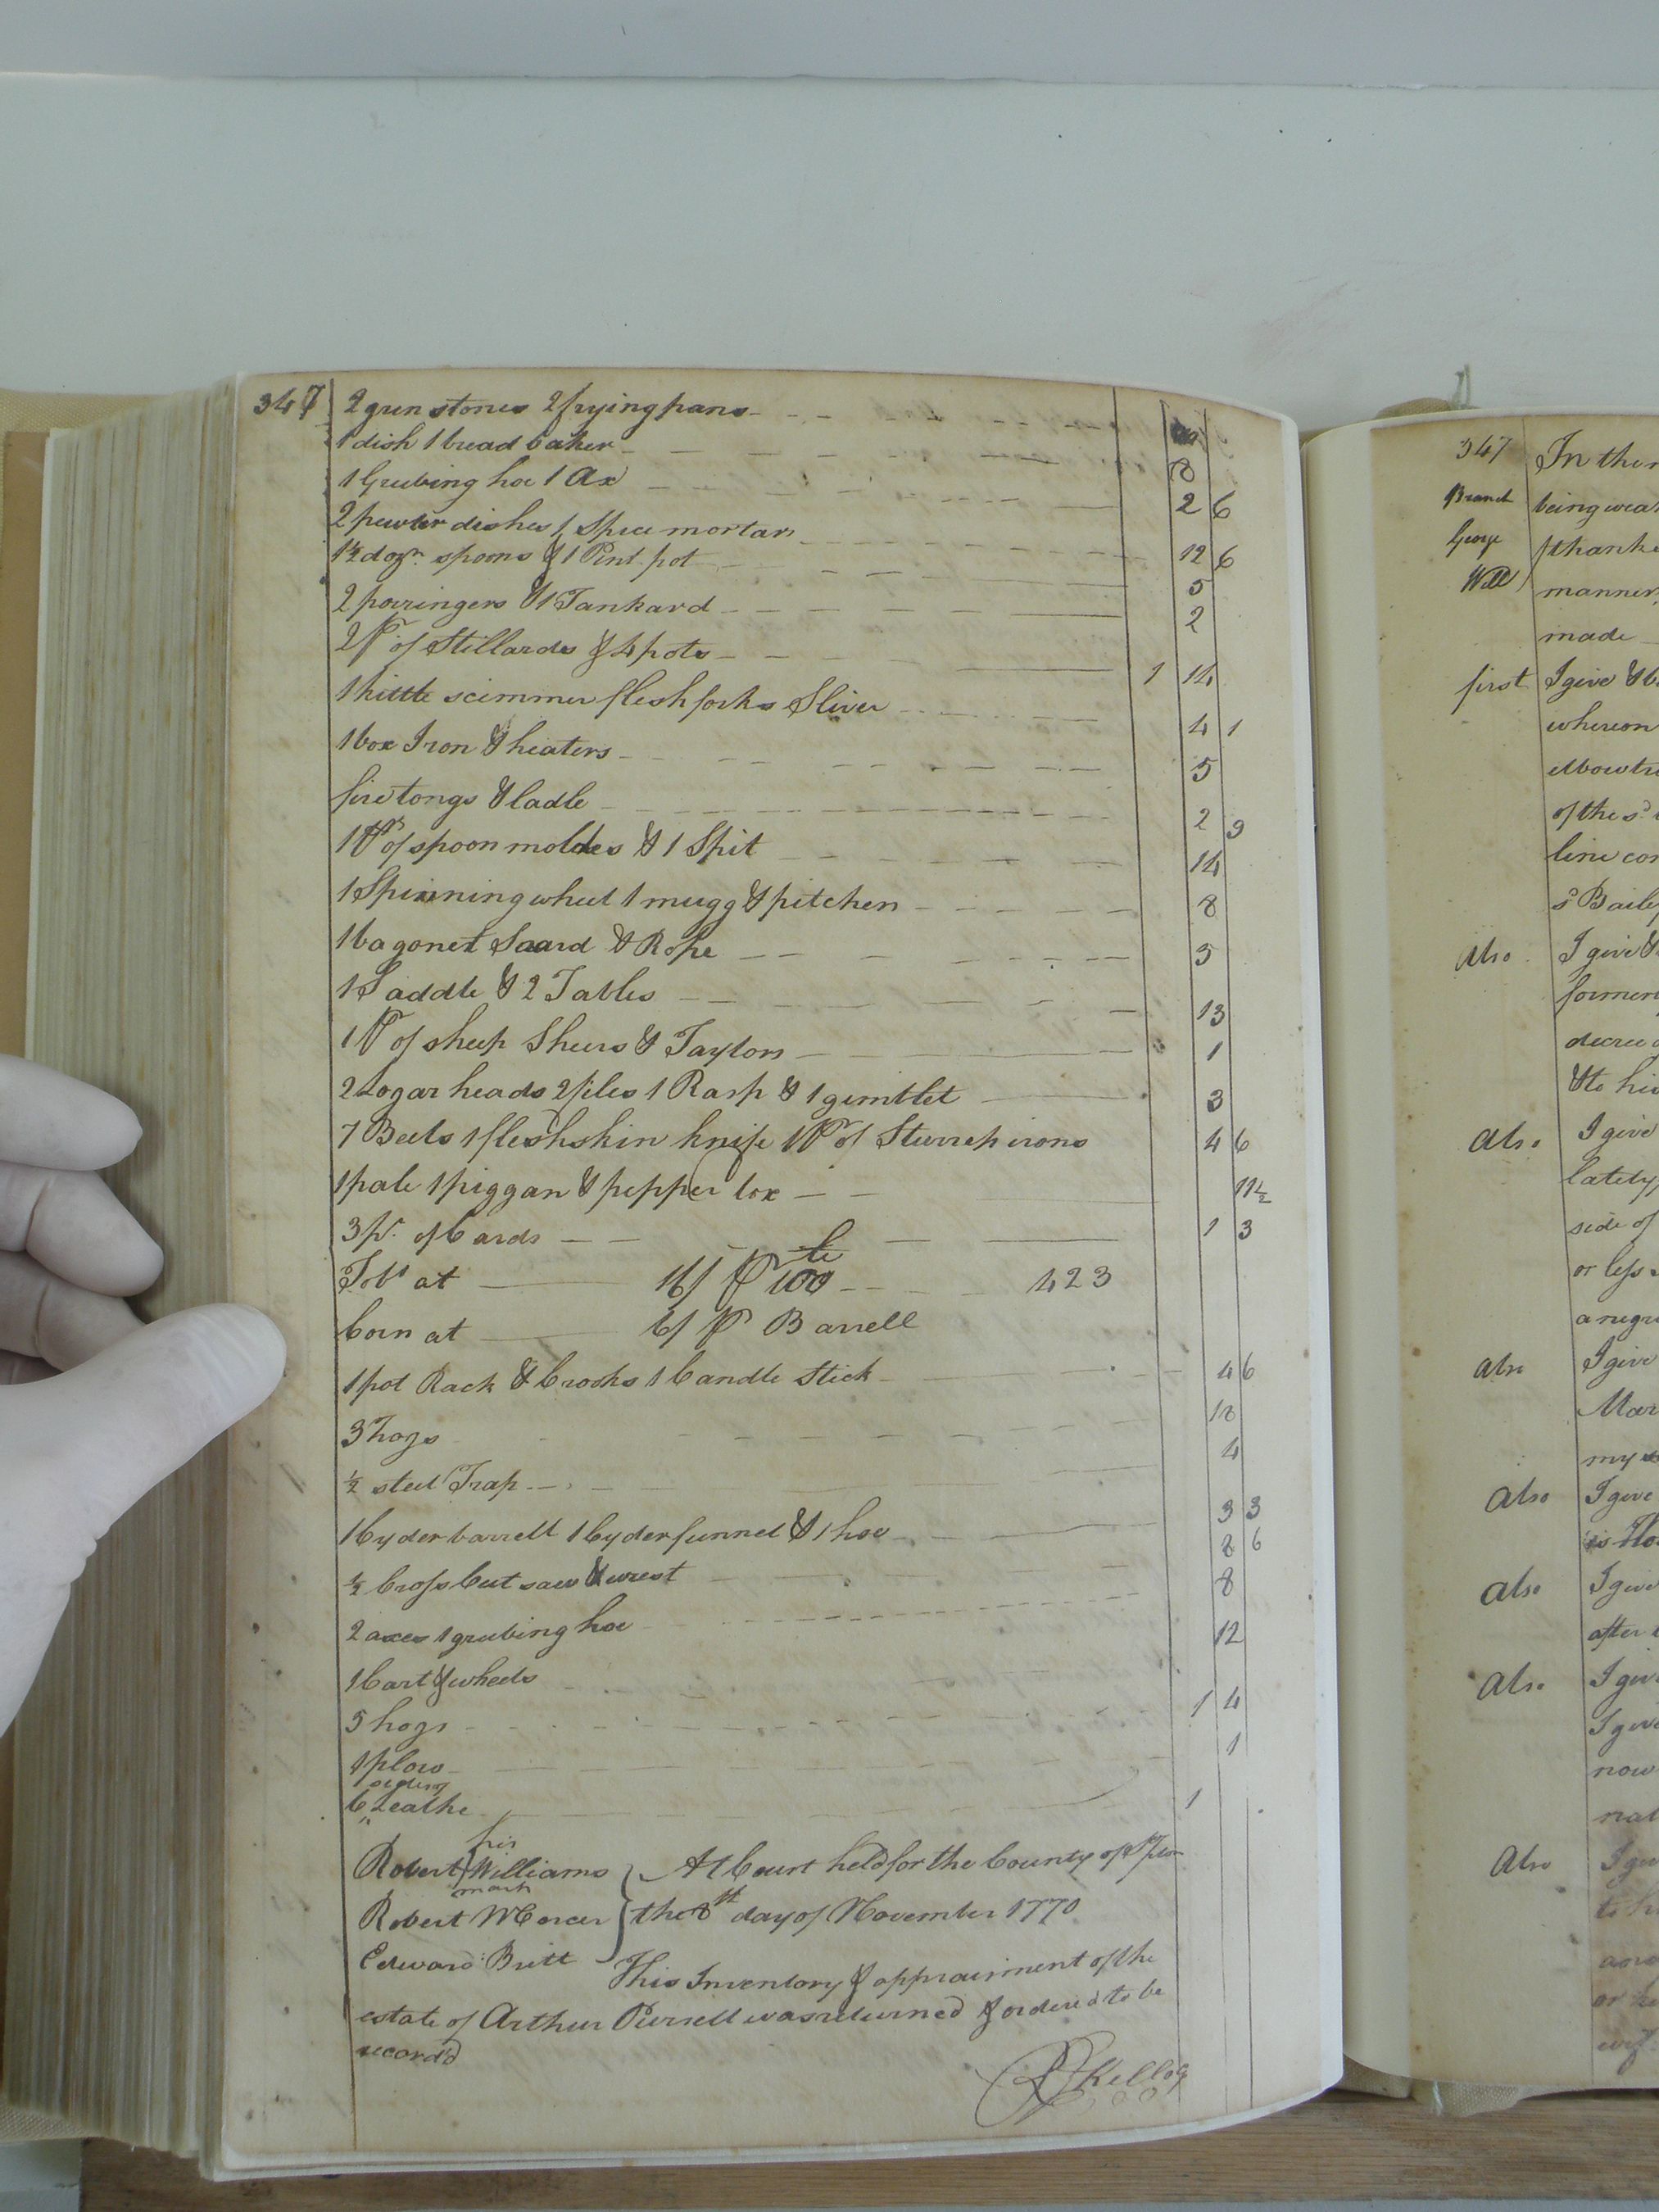 347 2 grinstones 2 frying pans
1 dish 1 bread baker 8
1 Grubing hoe 1 Ax 2 6
2 pewter dishes 1 Spice mortar 12 6
1½ dozn. spoons & 1 Pint pot 5
2 porringers & 1 Tankard 2
2 Pr of Stillards & 4 pots 1 14
1 kittle scimmer flesh forks Sliver 4 1
1 box Iron & heaters 5
fire tongs & ladle 2 9
1 Pr of spoon moldes & 1 Spit 14
1 Spinning wheel 1 mugg & pitchen 8
1 bagonet Saard & Rope 5
1 Saddle & 2 Tables 13
1 Pr of sheep Sheers & Taylors 1
2 Logar heads 2 files 1 Rasp & 1 gimblet 3
7 Beels 1 flesh skin knife 1 Pr of Sturrep irons 4 6
1 pale 1 piggan & pepper box 11½
3 pr. of Cards 1 3
Tobo at 16/ P 100 423
Corn at 6/ P Barrell
1 pot Rack & Crooks 1 Candle Stick 4 6
3 hogs 18
½ steel Trap 4
1 Cyder barrell 1 Cyder funnel & 1 hoe 3 3
½ Cross Cut saw & wrest 2 6
2 axes 1 grubing hoe 8
1 Cart & wheels 12
5 hogs 1 4
1 plow 1
6 siding Leathe 1
his
Robert Williams At Court held for the County of
mark
Robert Mercer the 8th day of November 1770
Edward Britt This Inventory & appraisment of the
estate of Arthur Purcell was returned & ordered to be
record'd
R Kellog
347 In the
Branch being weak
George thanks
Will manner
made
first I give & b
whereon
of the sd
line cor
sd Baily
Also I give &
former
decree
& to his
Also I give
lately
side of
or less
a negro
Also I give
Mar
my
Also I give
is
Also I give
after
Also I give
I give
now
nat
Also I give
to h
and
or
wife